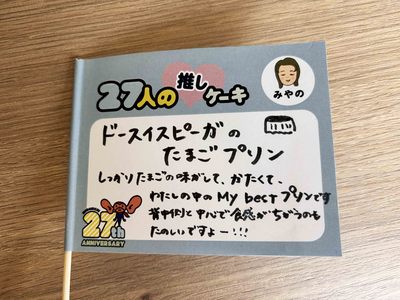 27人の推しケーキ
みやの
ドースイスピーガの
たまごプリン
しっかりたまごの味がして、かたくて、
わたしの中のMy bestプリンです
背中側と中心で食感がちがうのも
たのしいですよー!!!
27th
ANNIVERSARY